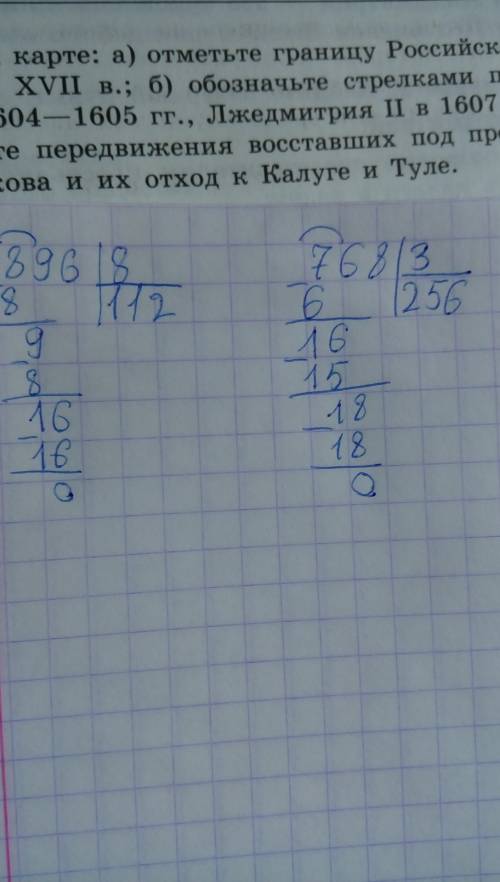 карте: а) отметьте границу Российск
XVII в.; б) обозначьте стрелками п
604—1605 гг., Лжедмитрия II в 1607
те передвижения восставших под пре
кова и их отход к Калуге и Туле.
896 8
8 112
9
8
16
16
0
768 3
6 256
16
15
18
18
0